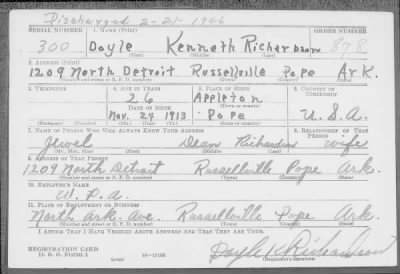 Discharged 2-21-1946
SERIAL NUMBER 1. NAME (Print) ORDER NUMBER
300 Doyle Kenneth Richardson 878
(First) (Middle) (Last)
2. ADDRESS (Print)
1209 North Detroit Russellville Pope Ark.
(Number and street or R. F. D. number) (Town) (County) (State)
3. TELEPHONE 4. AGE IN YEARS 5. PLACE OF BIRTH 6. COUNTRY OF CITIZENSHIP
26 Appleton
DATE OF BIRTH (Town or county)
Nov. 24 1913 Pope U.S.A.
(Exchange) (Number) (Mo.) (Day) (Yr.) (State or country)
7. NAME OF PERSON WHO WILL ALWAYS KNOW YOUR ADDRESS 8. RELATIONSHIP OF THAT PERSON
Jewel Dean Richardson wife
(Mr., Mrs., Miss) (First) (Middle) (Last)
9. ADDRESS OF THAT PERSON
1209 North Detroit Russellville Pope Ark.
(Number and street or R. F. D. number) (Town) (County) (State)
10. EMPLOYER'S NAME
W.P.A.
11. PLACE OF EMPLOYMENT OR BUSINESS
North Ark. Ave. Russellville Pope Ark.
(Number and street or R. F. D. number) (Town) (County) (State)
I AFFIRM THAT I HAVE VERIFIED ABOVE ANSWERS AND THAT THEY ARE TRUE.
REGISTRATION CARD
D. S. S. Form 1 (over) 16-17105 Doyle K Richardson
(Registrant's signature)